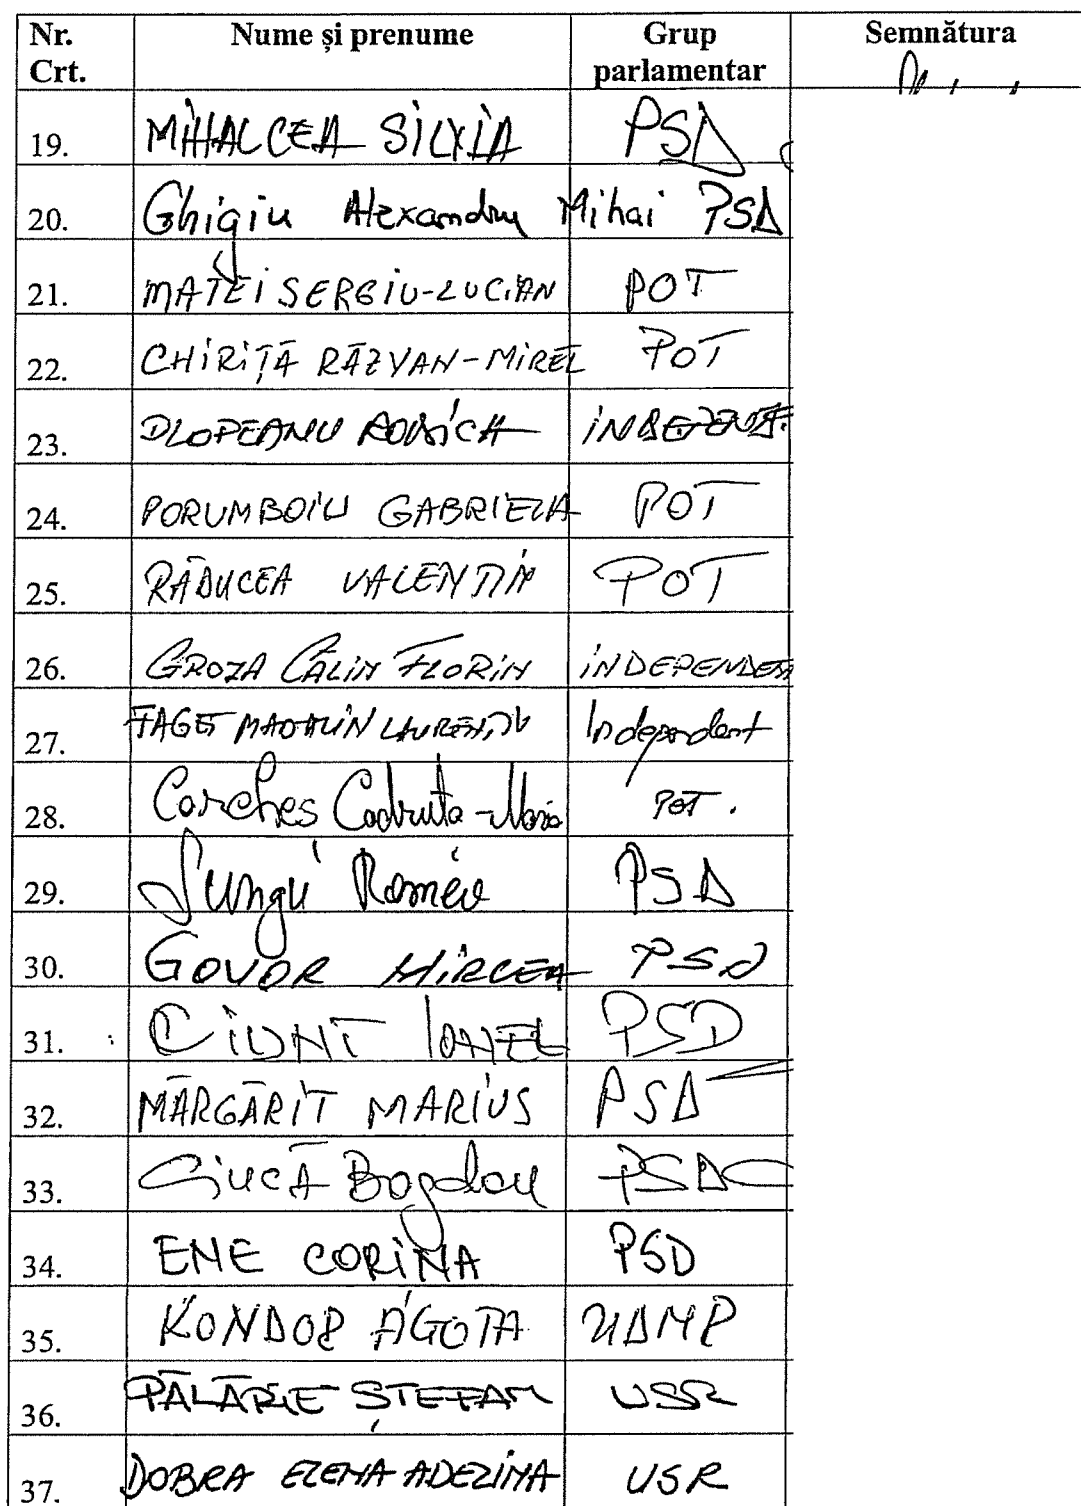 Nr. Crt. Nume și prenume Grup parlamentar Semnătura
19. MIHALCEA SILVIA PSD
20. Ghigiu Alexandru Mihai PSD
21. MATEI SERGIU-LUCIAN POT
22. CHIRIȚĂ RĂZVAN-MIREL POT
23. DLOPEANU RODICA INDEPEND.
24. PORUMBOIU GABRIELA POT
25. RĂDUCEA VALENTIN POT
26. GROZA CĂLIN FLORIN INDEPENDENT
27. FAGET MADALIN LAURENȚIU Independent
28. Corches Codruta-Maria POT.
29. Lungu Romeo PSD
30. GOVOR MIRCEA PSD
31. CIUNT IONEL PSD
32. MĂRGĂRIT MARIUS PSD
33. Ciucă Bogdan PSD
34. ENE CORINA PSD
35. KONDOR ÁGOTA UDMR
36. PĂLĂRIE ȘTEFAN USR
37. DOBRA ELENA ADELINA USR